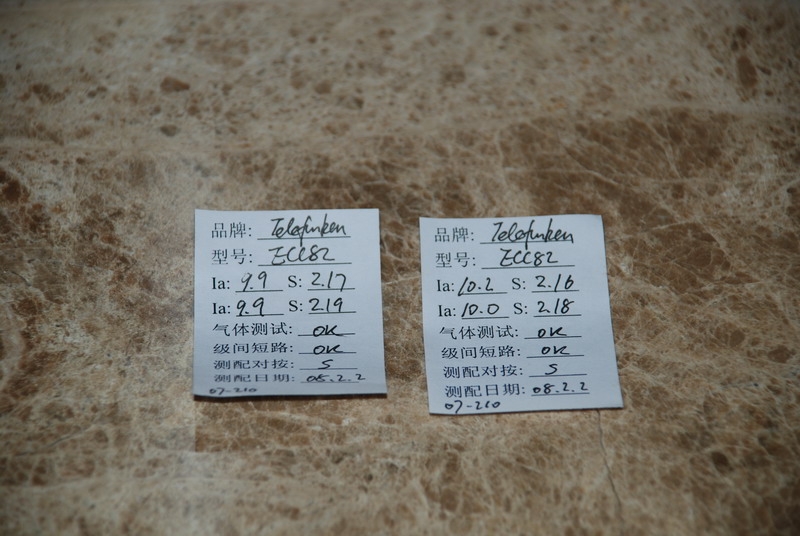 品牌: Telefunken
型号: ECC82
Ia: 9.9 S: 2.17
Ia: 9.9 S: 2.19
气体测试: OK
级间短路: OK
测配对按: S
测配日期: 08.2.2
07-210
品牌: Telefunken
型号: ECC82
Ia: 10.2 S: 2.16
Ia: 10.0 S: 2.18
气体测试: OK
级间短路: OK
测配对按: S
测配日期: 08.2.2
07-210